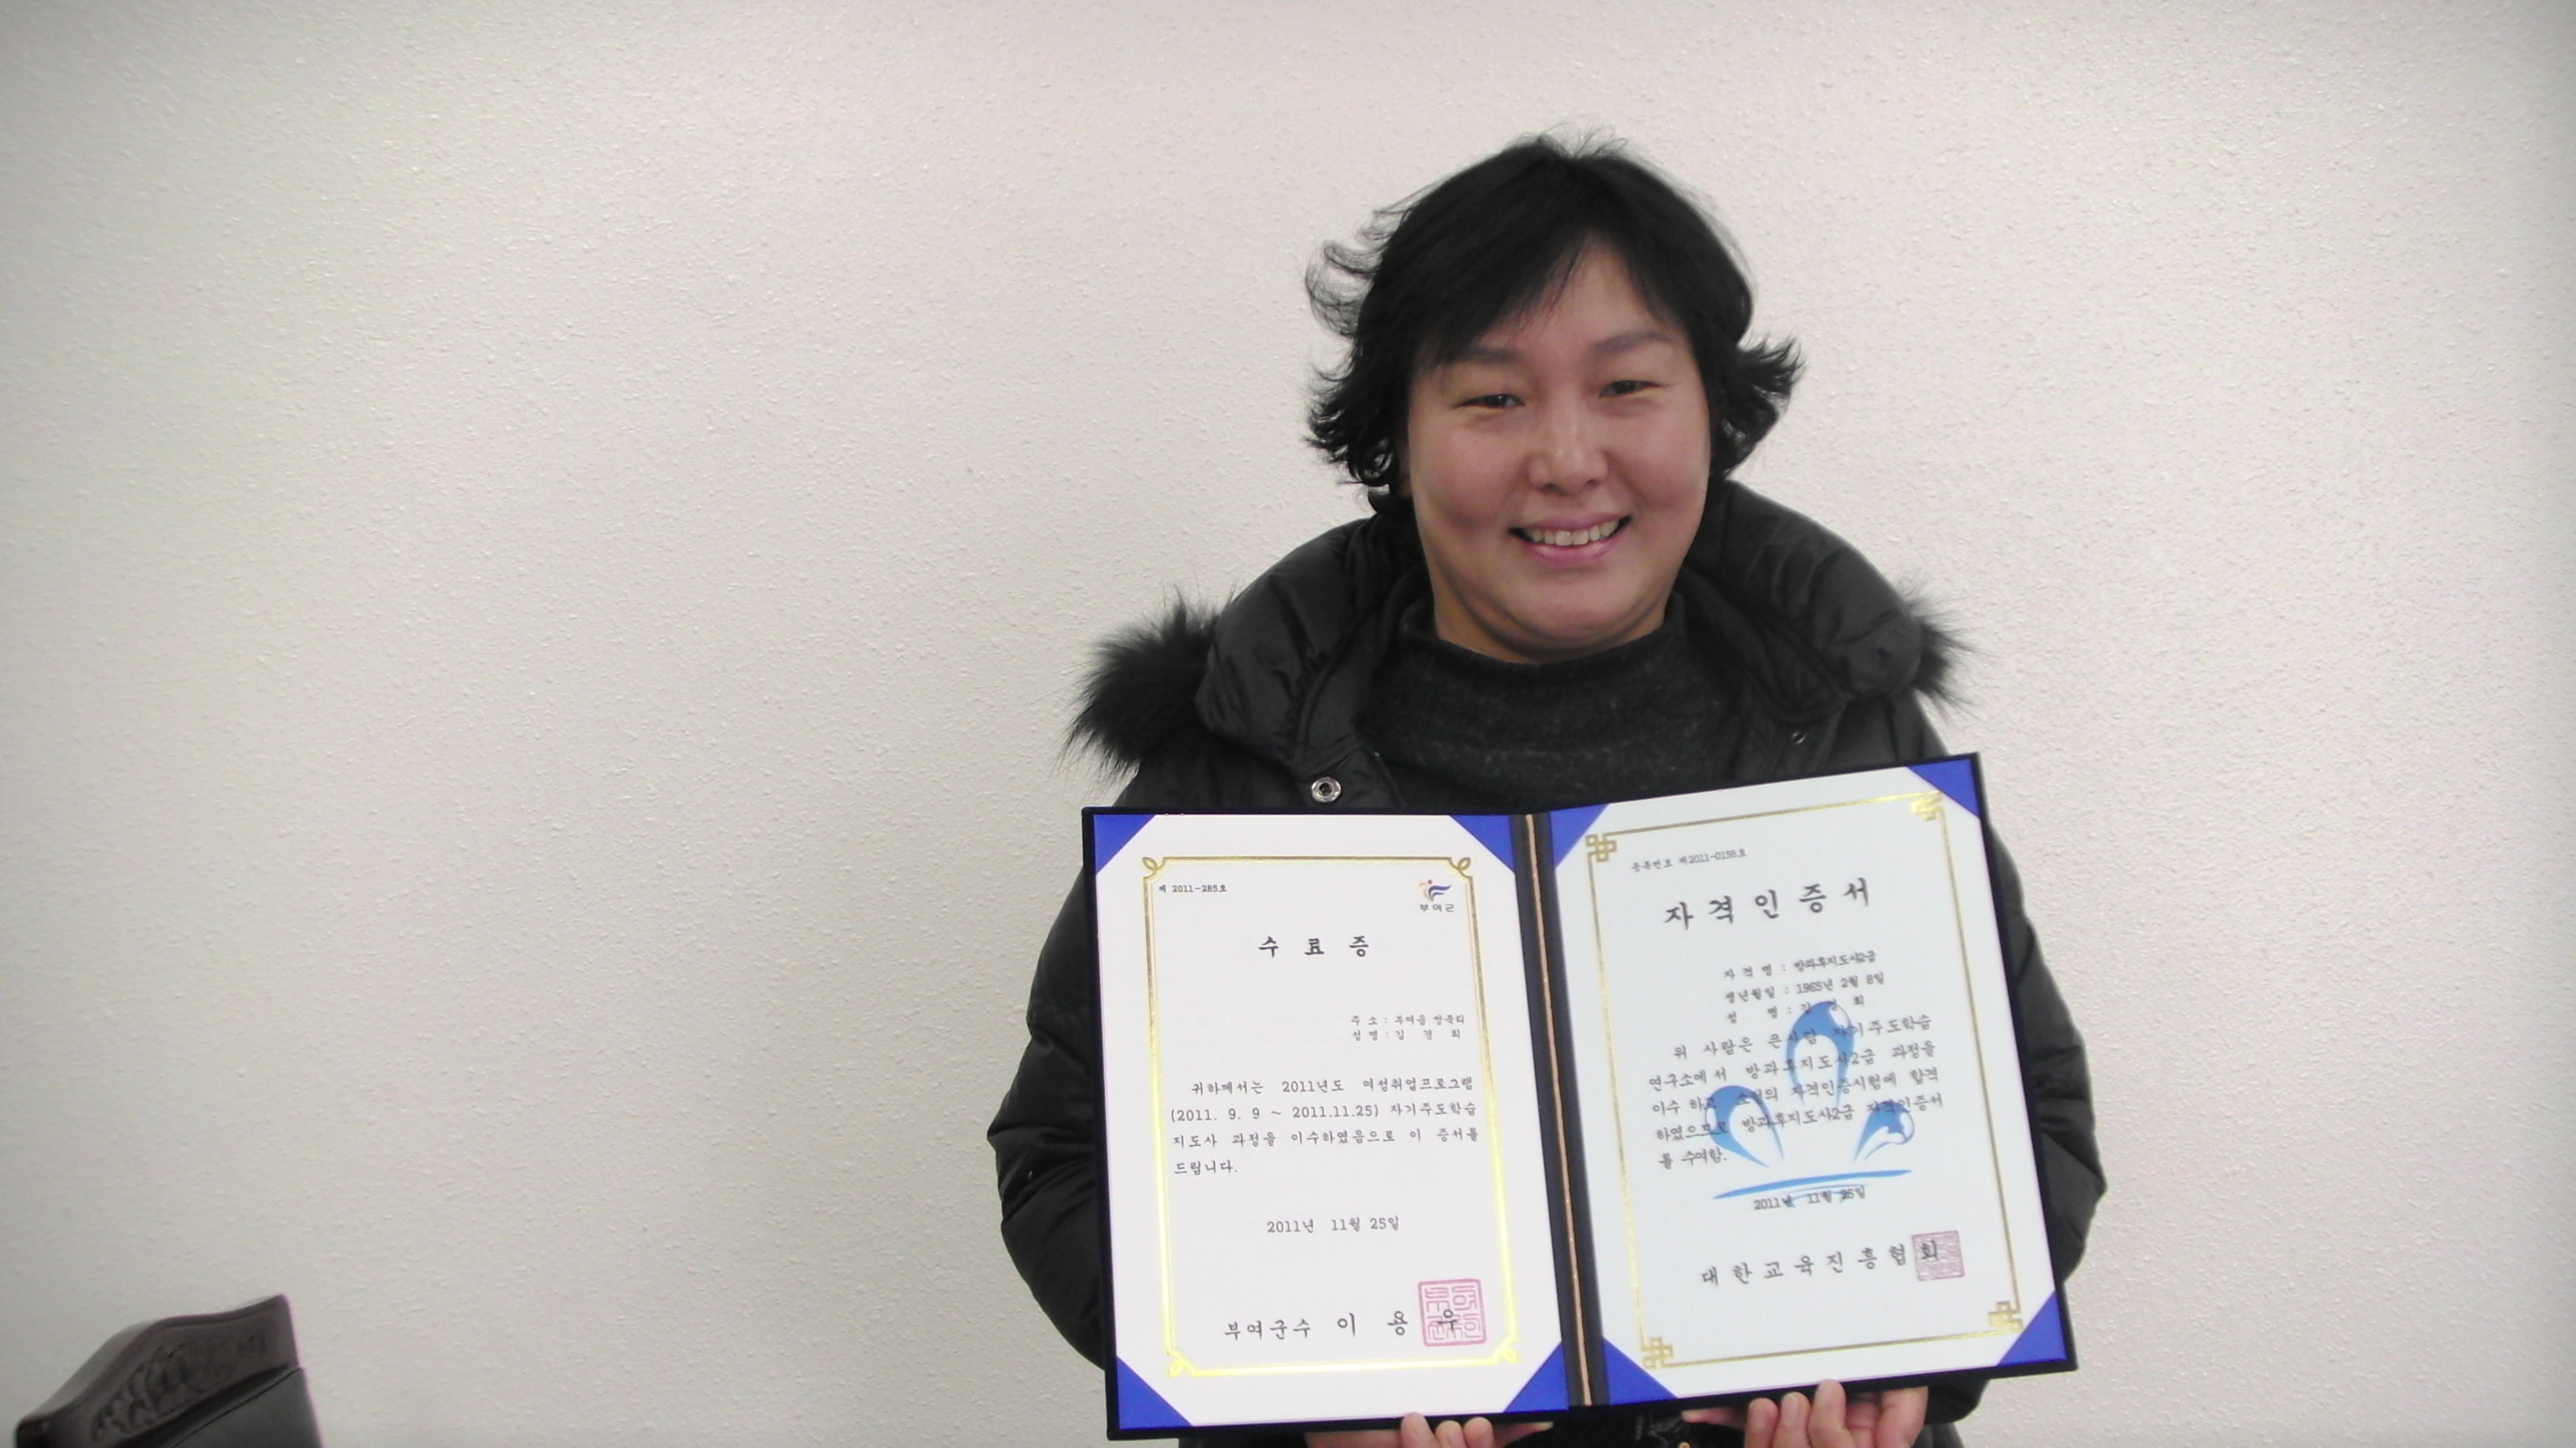 제 2011-285호
부여군
수 료 증
주 소 : 부여읍
성 명 : 김 경 희
귀하께서는 2011년도 여성취업프로그램
(2011. 9. 9 ~ 2011.11.25) 자기주도학습
지도사 과정을 이수하였음으로 이 증서를
드립니다.
2011년 11월 25일
부여군수 이 용 우
등록번호 제2011-0158호
자격인증서
자 격 명 : 방과후지도사2급
생년월일 : 1965년 2월 8일
성 명 : 김 경 희
위 사람은 큰사람 자기주도학습
연구소에서 방과후지도사2급 과정을
이수 하고 소정의 자격인증시험에 합격
하였으므로 방과후지도사2급 자격인증서
를 수여함.
2011년 11월 25일
대한교육진흥협회